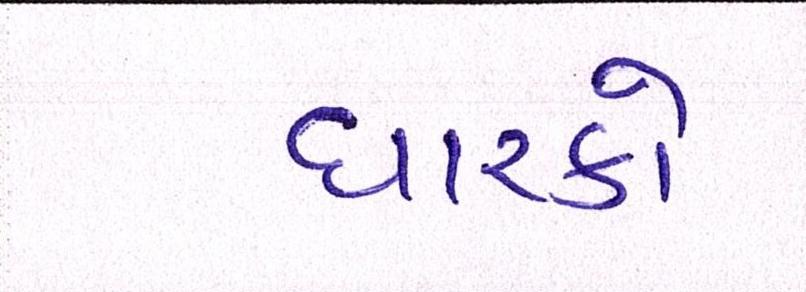 ધારકો